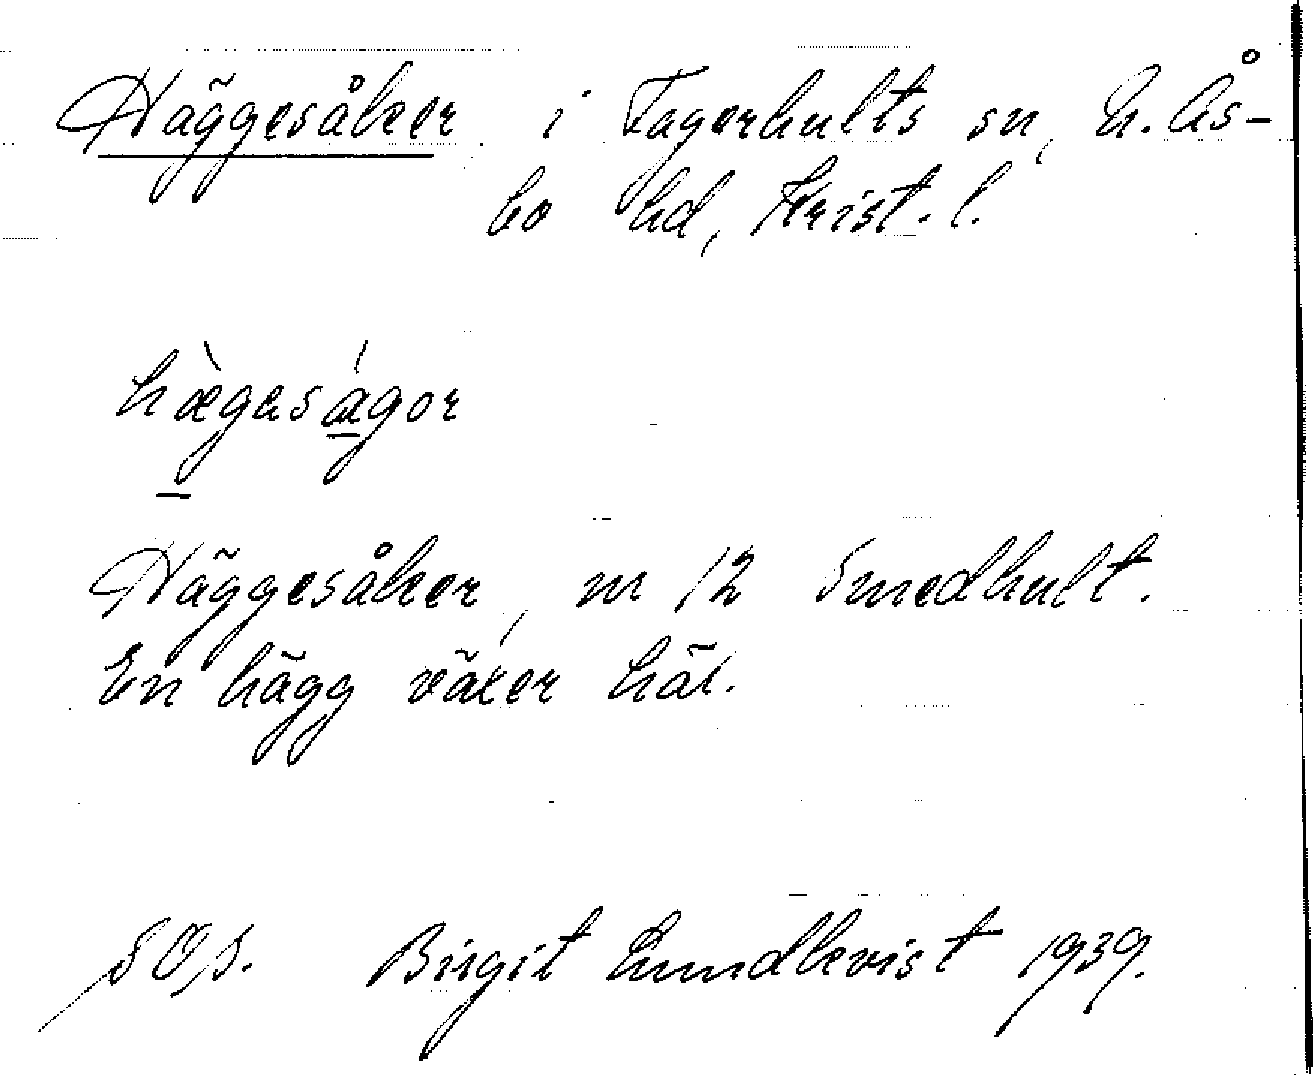 Häggesåker i Fagerhults sn, N. Ås-
bo hd, Krist. l.
hæ̀gaságor
Häggesåker, nr 12 Smedhult.
En hägg växer här.
Birgit Lundkvist 1939.